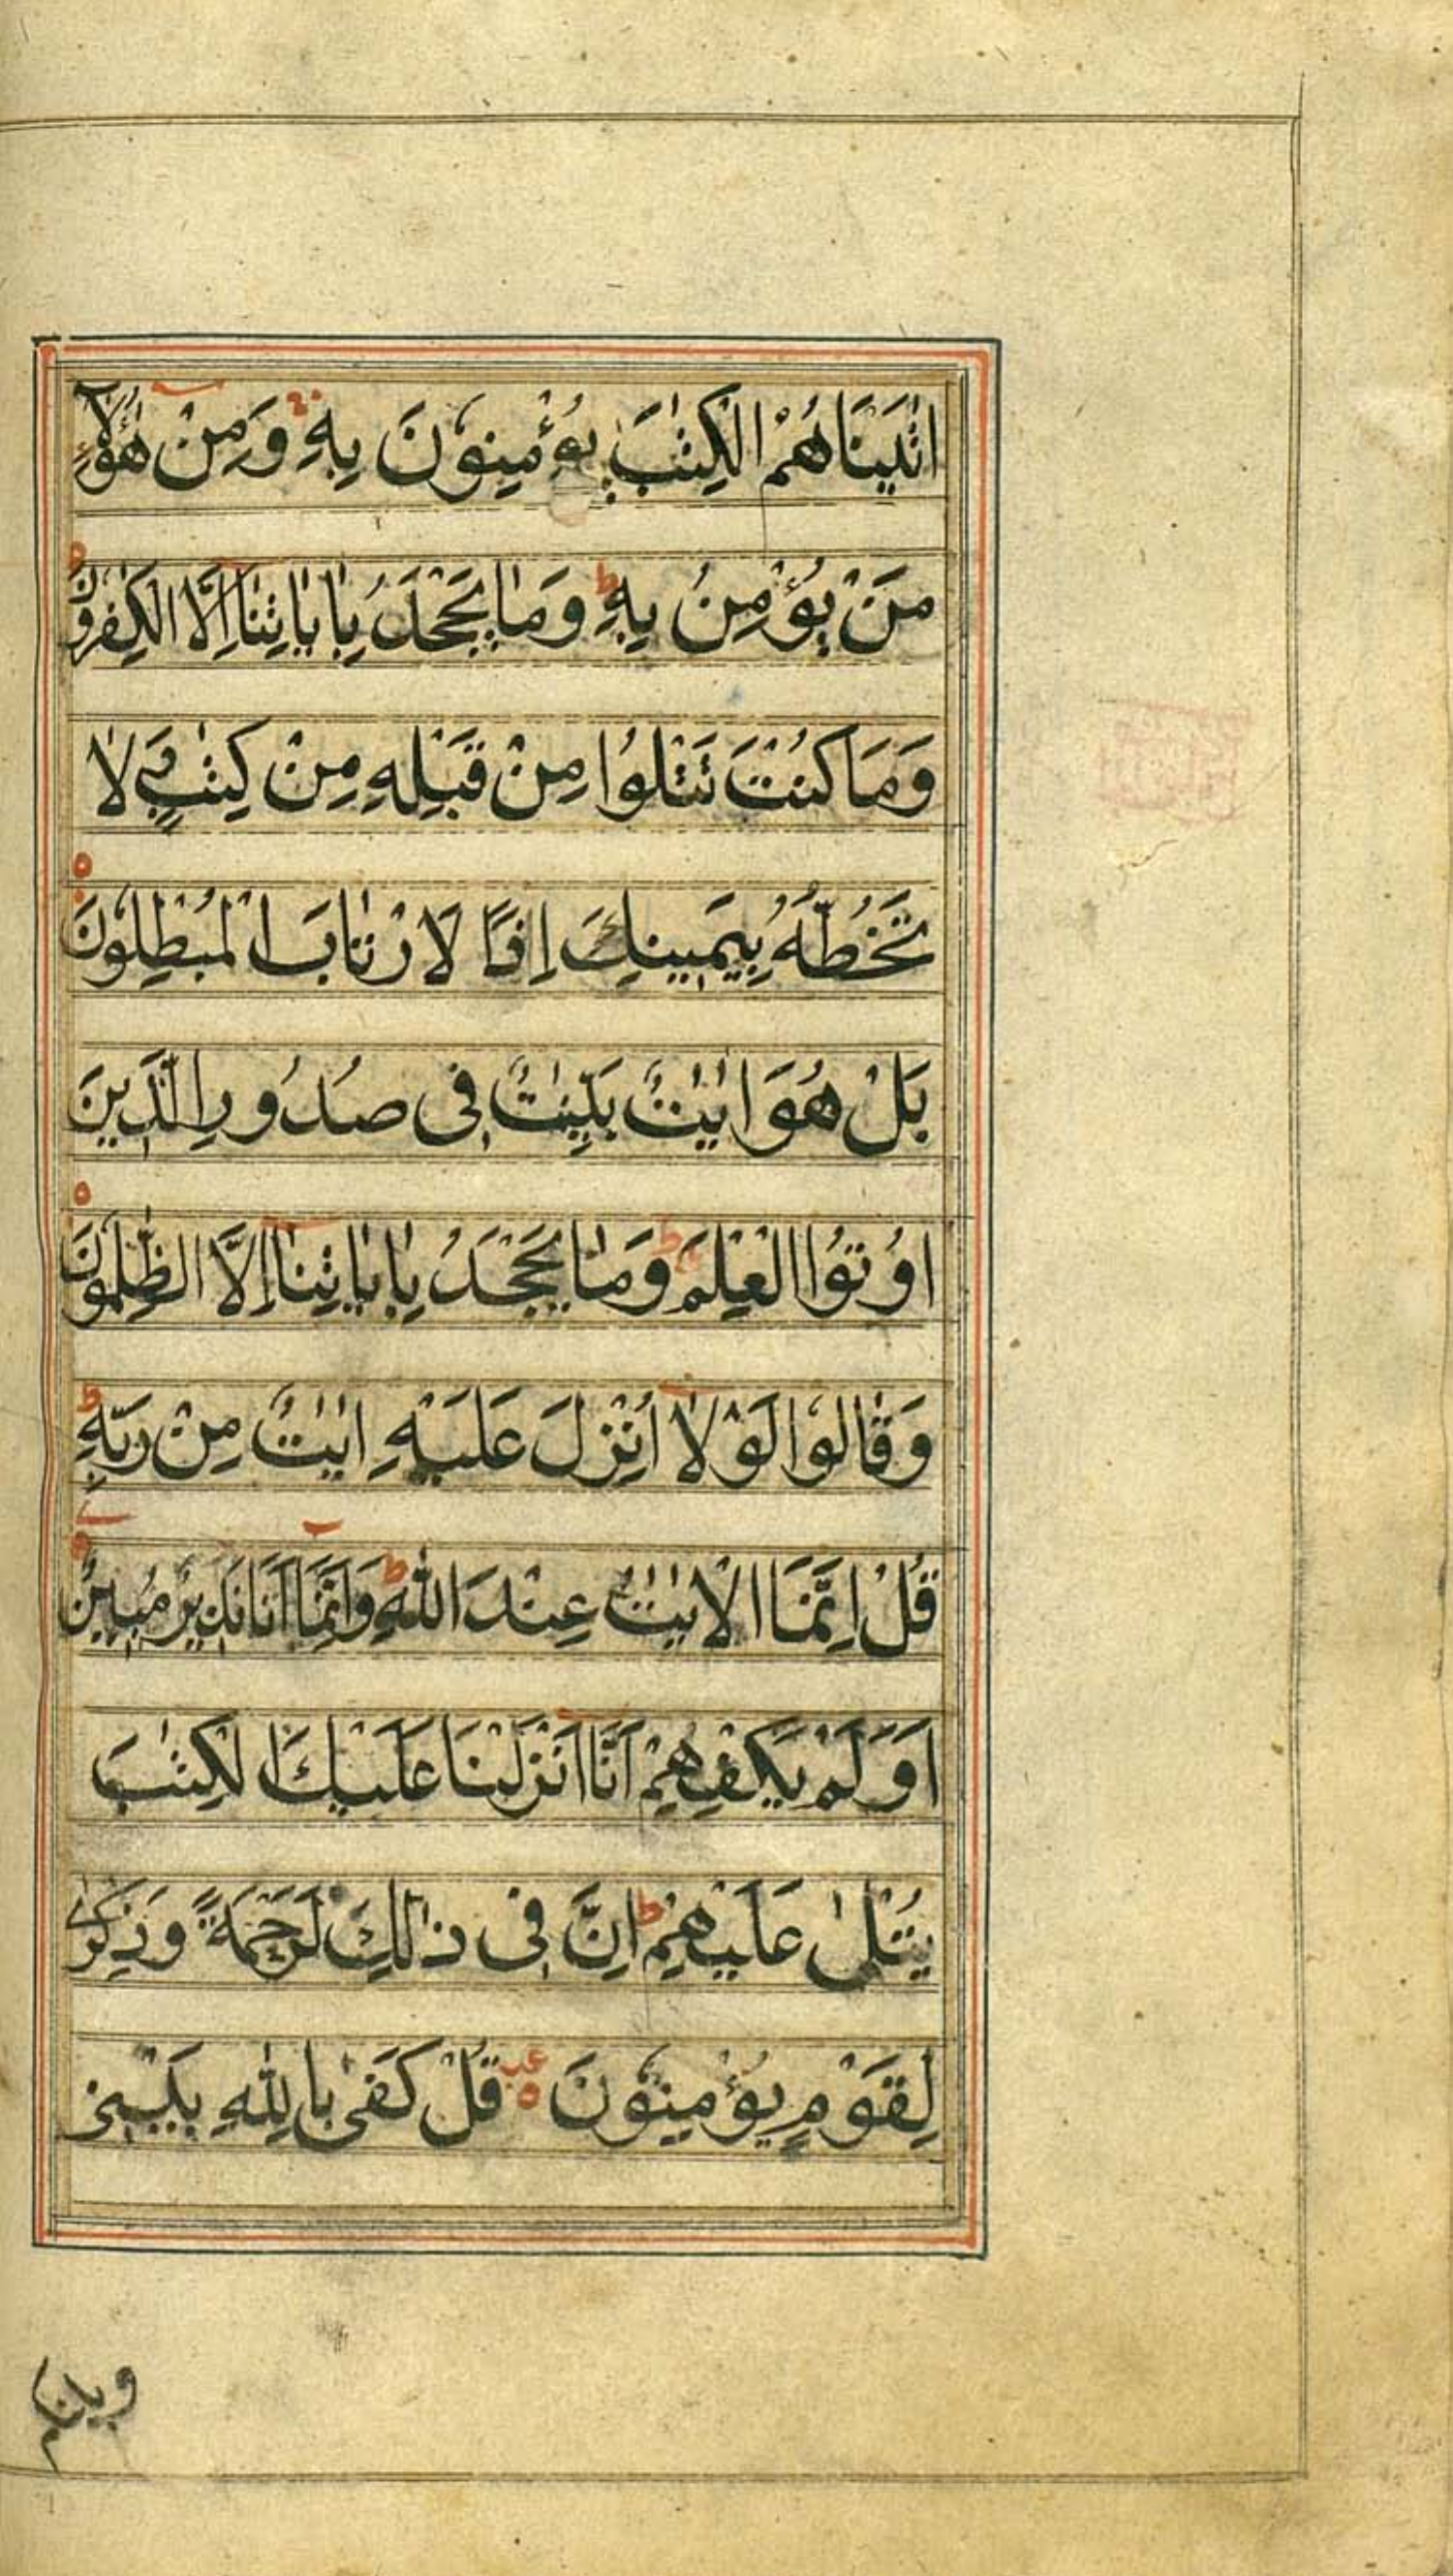 اتَيْنَاهُمُ الْكِتٰبَ يُؤْمِنُوْنَ بِهٖ وَمِنْ هٰؤُلَاۤءِ
مَنْ يُؤْمِنُ بِهٖ ط وَمَا يَجْحَدُ بِاٰيَاتِنَا اِلَّا الْكٰفِرُوْنَ
وَمَا كُنْتَ تَتْلُوْا مِنْ قَبْلِهٖ مِنْ كِتٰبٍ وَّلَا
تَخُطُّهٗ بِيَمِيْنِكَ اِذًا لَارْتَابَ الْمُبْطِلُوْنَ
بَلْ هُوَ اٰيٰتٌ بَيِّنٰتٌ فِى صُدُوْرِ الَّذِيْنَ
اُوْتُوا الْعِلْمَ ط وَمَا يَجْحَدُ بِاٰيَاتِنَا اِلَّا الظّٰلِمُوْنَ
وَقَالُوْا لَوْلَا اُنْزِلَ عَلَيْهِ اٰيٰتٌ مِنْ رَبِّهٖ ط
قُلْ اِنَّمَا الْاٰيٰتُ عِنْدَ اللّٰهِ ط وَاِنَّمَا اَنَا نَذِيْرٌ مُبِيْنٌ
اَوَلَمْ يَكْفِهِمْ اَنَّا اَنْزَلْنَا عَلَيْكَ الْكِتٰبَ
يُتْلٰى عَلَيْهِمْ ط اِنَّ فِى ذٰالِكَ لَرَحْمَةً وَذِكْرٰى
لِقَوْمٍ يُؤْمِنُوْنَ قُلْ كَفٰى بِاللّٰهِ بَيْنِى